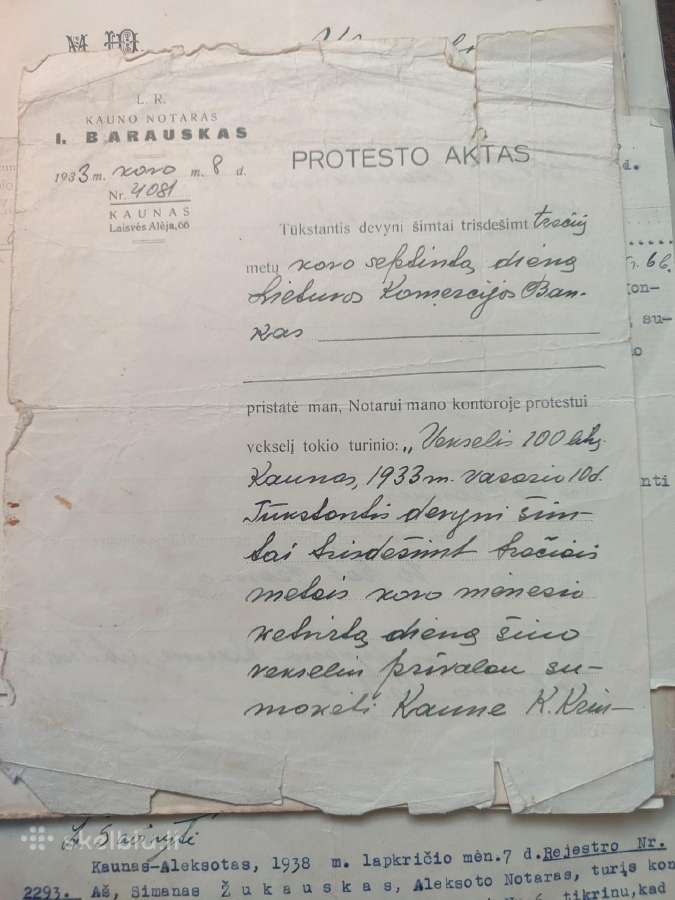 L. R.
KAUNO NOTARAS
I. BARAUSKAS
1933 m. kovo m. 8 d.
Nr. 4081
KAUNAS
Laisvės Alėja, 66
PROTESTO AKTAS
Tūkstantis devyni šimtai trisdešimt trečių
metų kovo septintą dieną
Lietuvos Komercijos Ban-
kas
pristatė man, Notarui mano kontoroje protestui
vekselį tokio turinio: „Vekselis 100 litų.
Kaunas, 1933 m. vasario 10 d.
Tūkstantis devyni šim-
tai trisdešimt trečiais
metais kovo mėnesio
ketvirtą dieną šiuo
vekseliu privalau su-
mokėti Kaune K.
d.
6b.
on-
su-
o
nti
skelbiu.lt
Kaunas-Aleksotas, 1938 m. lapkričio mėn. 7 d. Rejestro Nr.
2293. Aš, Simanas Žukauskas, Aleksoto Notaras, turįs kon
tikrinu, kad